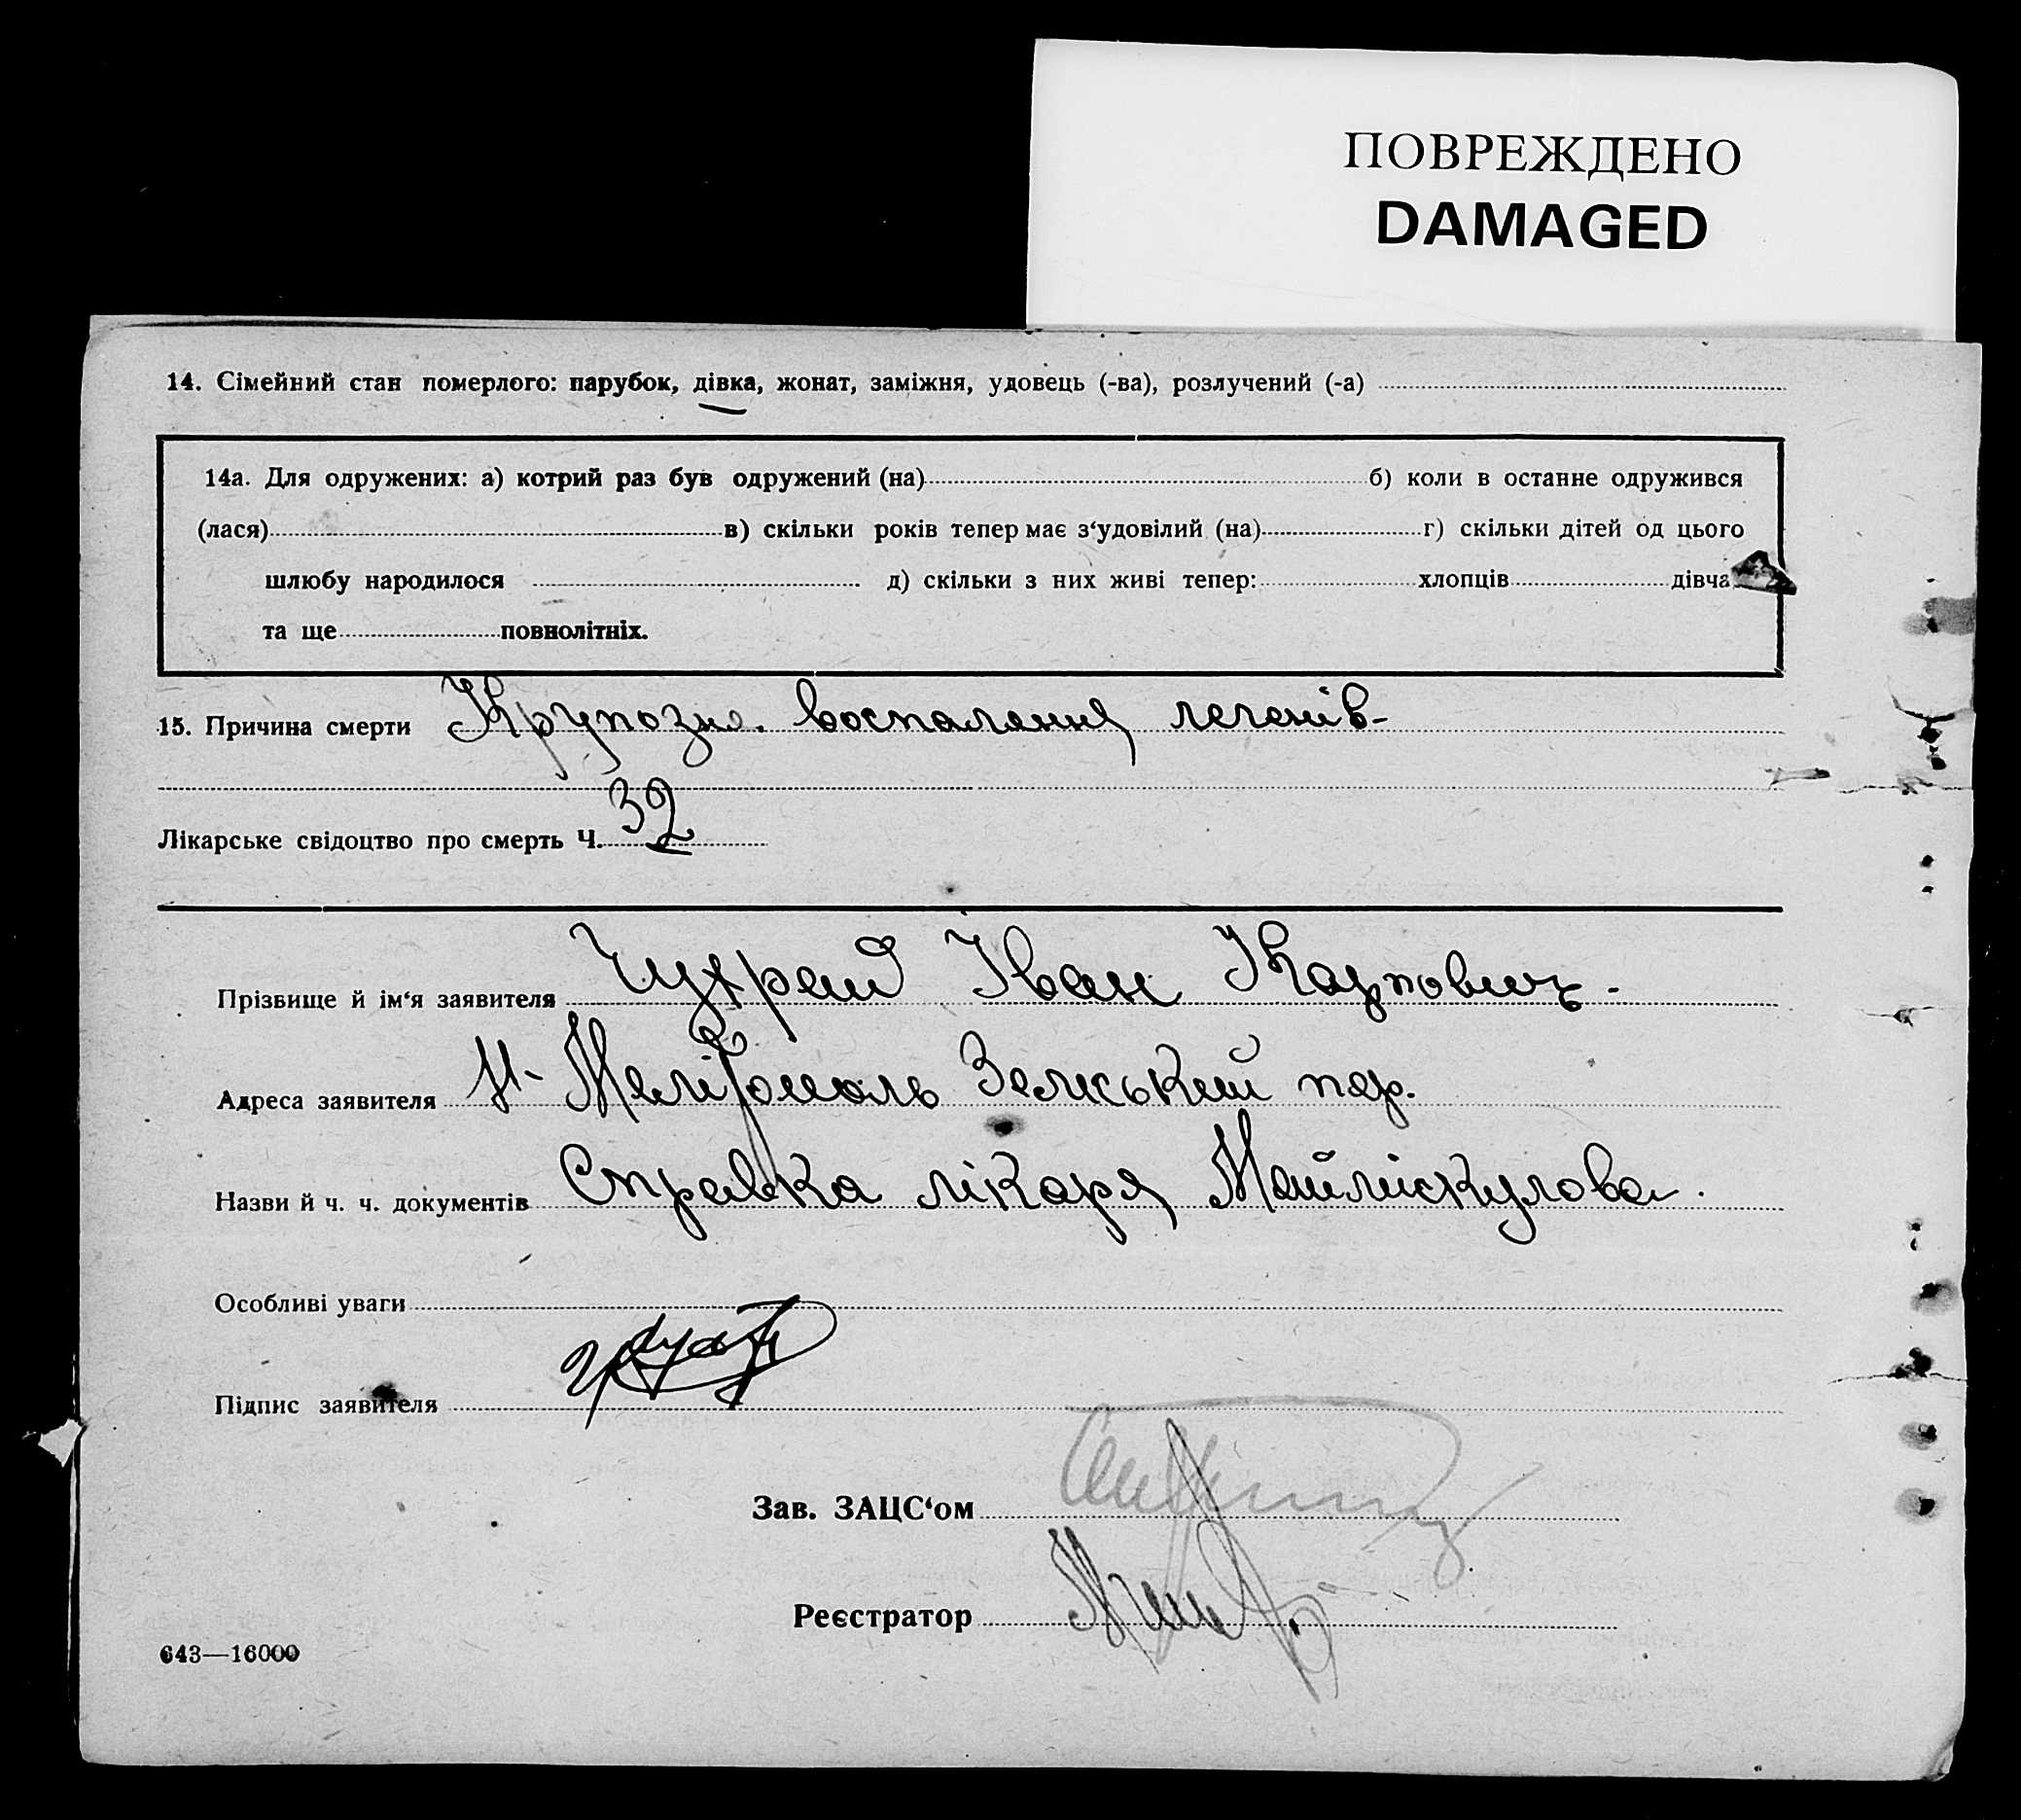 ПОВРЕЖДЕНО
DAMAGED
14. Сімейний стан померлого: парубок, дівка, жонат, заміжня, удовець (-ва), розлучений (-а)
14а. Для одружених: а) котрий раз був одружений (на) б) коли в останне одружився
(лася) в) скільки років тепер має з‘удовілий (на) г) скільки дітей од цього
шлюбу народилося д) скільки з них живі тепер: хлопців дівча
та ще повнолітніх.
15. Причина смерти Крупозн. воспаления легенів-
Лікарське свідоцтво про смерть Ч. 32
Прізвище й ім‘я заявителя Чухрай Іван Карпович.
Адреса заявителя М- Мелітополь Земський пер.
Назви й ч. ч. документів Справка лікаря
Особливі уваги
Підпис заявителя
Зав. ЗАЦС‘ом
Реєстратор
643—16000